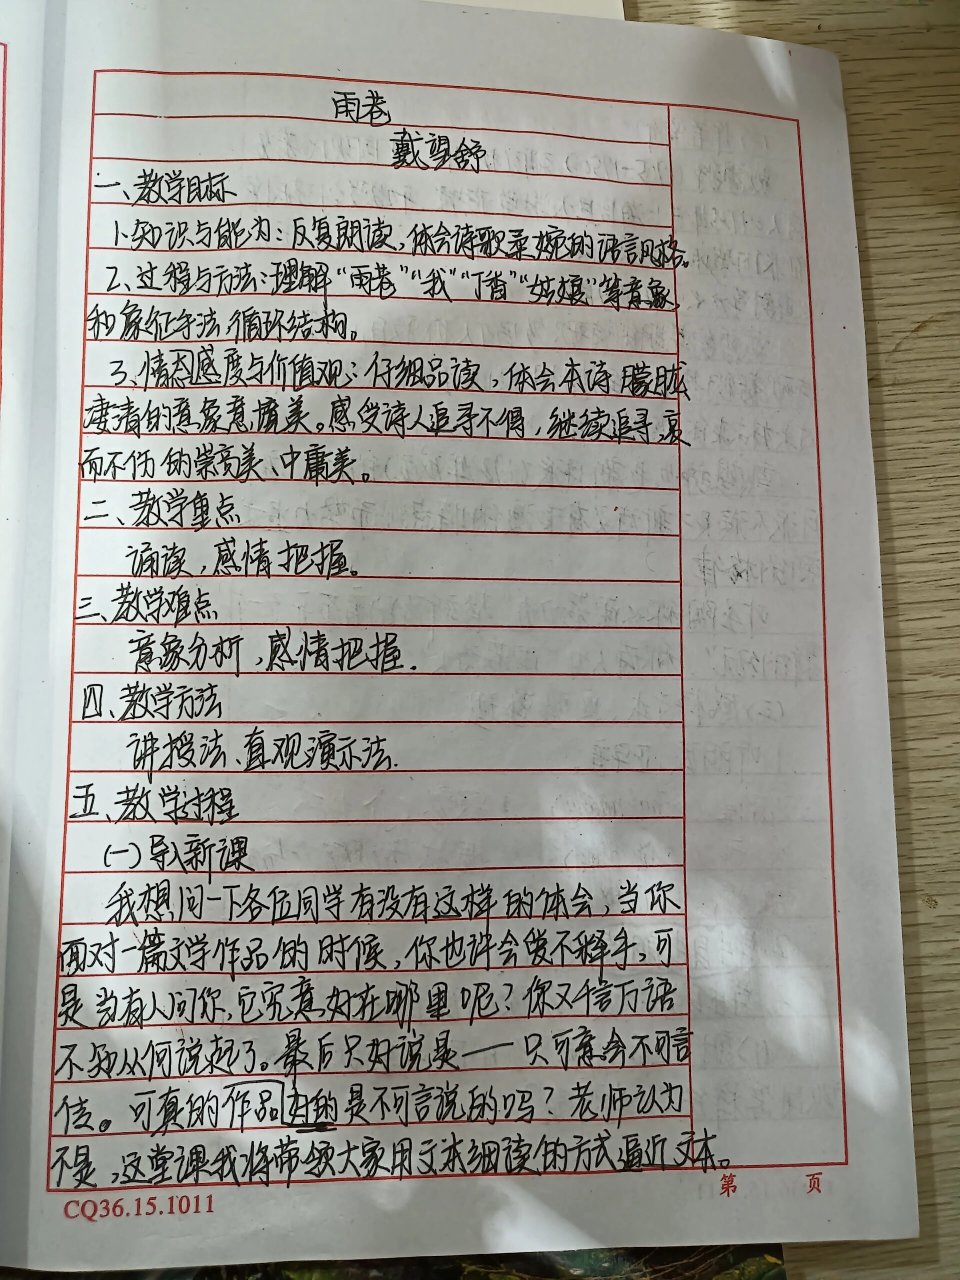 雨巷
戴望舒
一、教学目标
1.知识与能力：反复朗读，体会诗歌柔婉的语言风格。
2.过程与方法：理解“雨巷”“我”“丁香”“姑娘”等意象
和象征手法循环结构。
3、情态感度与价值观：仔细品读，体会本诗朦胧
凄清的意象意境美。感受诗人追寻不得，继续追寻，哀
而不伤的崇高美、中庸美。
二、教学重点
诵读，感情把握。
三、教学难点
意象分析，感情把握.
四、教学方法
讲授法、直观演示法.
五、教学过程
(一)导入新课
我想问一下各位同学有没有这样的体会，当你
面对一篇文学作品的时候，你也许会爱不释手，可
是当有人问你，它究竟好在哪里呢？你又千言万语
不知从何说起了。最后只好说是——只可意会不可言
传。可真的作品好的是不可言说的吗？老师认为
不是，这堂课我将带领大家用文本细读的方式逼近文本。
第 页
CQ36.15.1011